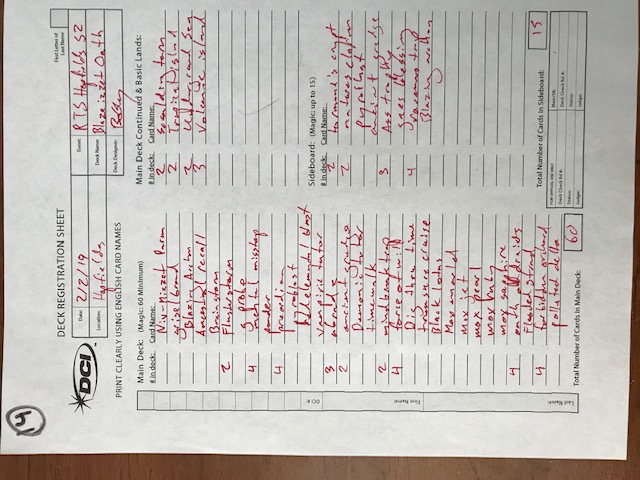 14
DECK REGISTRATION SHEET
First Letter of
Last Name
DCI
Date: 2/2/19
Event: RTS Hopfields S2
Location: Hopfields
Deck Name: Blazeizzet Oath
Deck Designer:
PRINT CLEARLY USING ENGLISH CARD NAMES
Main Deck: (Magic: 60 Minimum)
# in deck: Card Name:
Niv-Mizzet Parun
griselbrand
Blazing Archon
Ancestral recall
Brainstorm
2 Flusterstorm
g probe
4 mental misstep
ponder
4 preordian
pyroblast
elemental blast
vampiric tutor
3 abrade
2 ancient grudge
Demonic tutor
timewalk
2 mindbreak trap
4 force of will
Dig thru time
treasure cruise
Black lotus
Mox emerald
mox jet
mox pearl
mox ruby
mox sapphire
4 oath of druids
Flooded strand
4 forbidden orchard
polluted delta
Total Number of Cards in Main Deck: 60
Main Deck Continued & Basic Lands:
# in deck: Card Name:
2 scalding tarn
2 Tropical island
2 Underground Sea
3 Volcanic island
Sideboard: (Magic: up to 15)
# in deck: Card Name:
2 tormund's crypt
2 natures claim
pyroblast
antient grudge
3 Ass trophy
geas blessing
4 ravenous trap
Blazing archon
Total Number of Cards in Sideboard: 15
FOR OFFICIAL USE ONLY
Main/SB: /
Deck Check Rd #: Deck Check Rd #:
Status: Status:
Judge: Judge:
DCI #:
First Name:
Last Name: